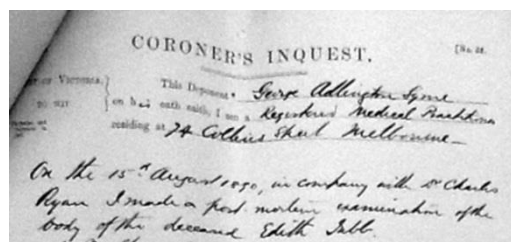 CORONER'S INQUEST.
[No. 24.
OF VICTORIA.
TO WIT
This Deponent George Adlington Syme
on h is oath saith, I am a Registered Medical Practitioner
residing at 74 Collins Street Melbourne
On the 15th August 1890, in company with Dr Charles
Ryan I made a post mortem examination of the
body of the deceased Edith Tubb.